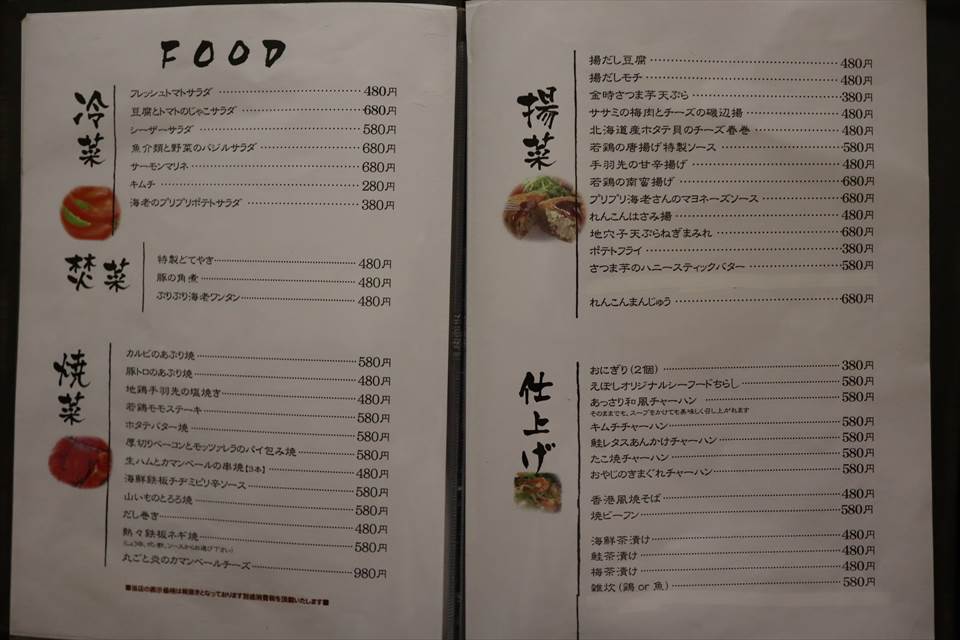 FOOD
冷菜
フレッシュトマトサラダ 480円
豆腐とトマトのじゃこサラダ 680円
シーザーサラダ 580円
魚介類と野菜のバジルサラダ 680円
サーモンマリネ 680円
キムチ 280円
海老のプリプリポテトサラダ 380円
焚菜
特製どてやき 480円
豚の角煮 480円
ぷりぷり海老ワンタン 480円
焼菜
カルビのあぶり焼 580円
豚トロのあぶり焼 480円
地鶏手羽先の塩焼き 480円
若鶏モモステーキ 580円
ホタテバター焼 580円
厚切りベーコンとモッツァレラのパイ包み焼 580円
生ハムとカマンベールの串焼【3本】 480円
海鮮鉄板チヂミピリ辛ソース 580円
山いものとろろ焼 580円
だし巻き 480円
熱々鉄板ネギ焼 580円
丸ごと炎のカマンベールチーズ 980円
■当店の表示価格は税抜きとなっております別途消費税を頂戴いたします■
揚菜
揚だし豆腐 480円
揚だしモチ 480円
金時さつま芋天ぷら 380円
ササミの梅肉とチーズの磯辺揚 480円
北海道産ホタテ貝のチーズ春巻 480円
若鶏の唐揚げ特製ソース 580円
手羽先の甘辛揚げ 480円
若鶏の南蛮揚げ 680円
プリプリ海老さんのマヨネーズソース 680円
れんこんはさみ揚 480円
地穴子天ぷらねぎまみれ 680円
ポテトフライ 380円
さつま芋のハニースティックバター 580円
れんこんまんじゅう 680円
仕上げ
おにぎり(2個) 380円
えぼしオリジナルシーフードちらし 580円
あっさり和風チャーハン 580円
そのままでも、スープをかけても美味しく召し上がれます
キムチチャーハン 580円
鮭レタスあんかけチャーハン 580円
たこ焼チャーハン 580円
おやじのきまぐれチャーハン 580円
香港風焼そば 480円
焼ビーフン 580円
海鮮茶漬け 480円
鮭茶漬け 480円
梅茶漬け 480円
雑炊(鶏 or 魚) 580円